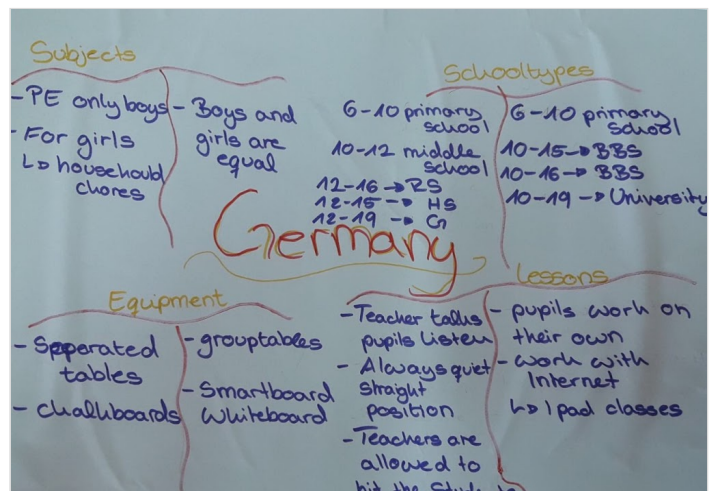 Subjects
- PE only boys
- For girls
↳ househould
chores
- Boys and
girls are
equal
Schooltypes
6-10 primary
school
10-12 middle
school
12-16 → RS
12-15 → HS
12-19 → G
6-10 primary
school
10-15 → BBS
10-16 → BBS
10-19 → University
Germany
Equipment
- Sepperated
tables
- Chalkboards
- grouptables
- Smartboard
Whiteboard
Lessons
- Teacher talks
pupils listen
- Always quiet
straight
position
- Teachers are
allowed to
hit the
- pupils work on
their own
- work with
Internet
↳ Ipad classes